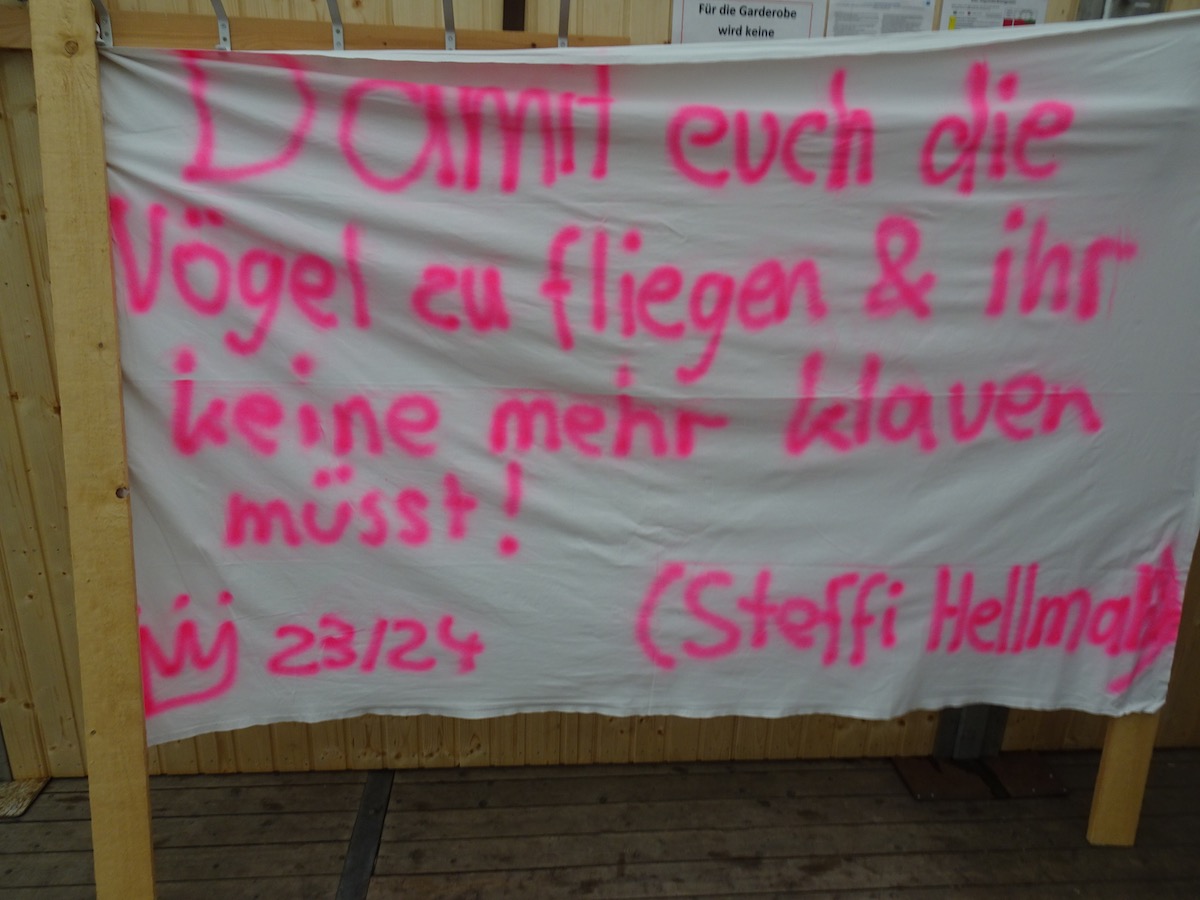 Für die Garderobe
wird keine
Damit euch die
Vögel zu fliegen & ihr
keine mehr klauen
müsst!
23/24
(Steffi Hellmann)